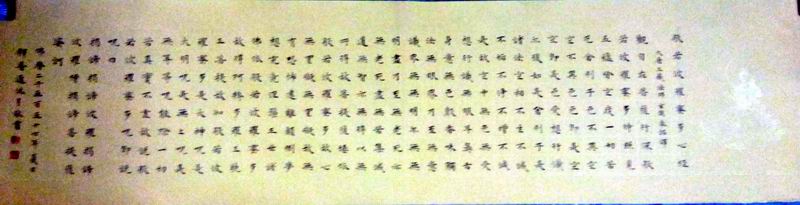 般若波羅蜜多心經
大唐三藏法師玄奘奉詔譯
觀自在菩薩行深般
若波羅蜜多時照見
五蘊皆空度一切苦
厄舍利子色不異空
空不異色色即是空
空即是色受想行識
亦復如是舍利子是
諸法空相不生不滅
不垢不淨不增不減
是故空中無色無受
想行識無眼耳鼻舌
身意無色聲香味觸
法無眼界乃至無意
識界無無明亦無無
明盡乃至無老死亦
無老死盡無苦集滅
道無智亦無得以無
所得故菩提薩埵依
般若波羅蜜多故心
無罣礙無罣礙故無
有恐怖遠離顛倒夢
想究竟涅槃三世諸
佛依般若波羅蜜多
故得阿耨多羅三藐
三菩提故知般若波
羅蜜多是大神呪是
大明呪是無上呪是
無等等呪能除一切
苦真實不虛故說般
若波羅蜜多呪即說
呪曰
揭諦揭諦波羅揭諦
波羅僧揭諦菩提薩
婆訶
佛曆二千五百五十七年夏日
釋善通沐手敬書